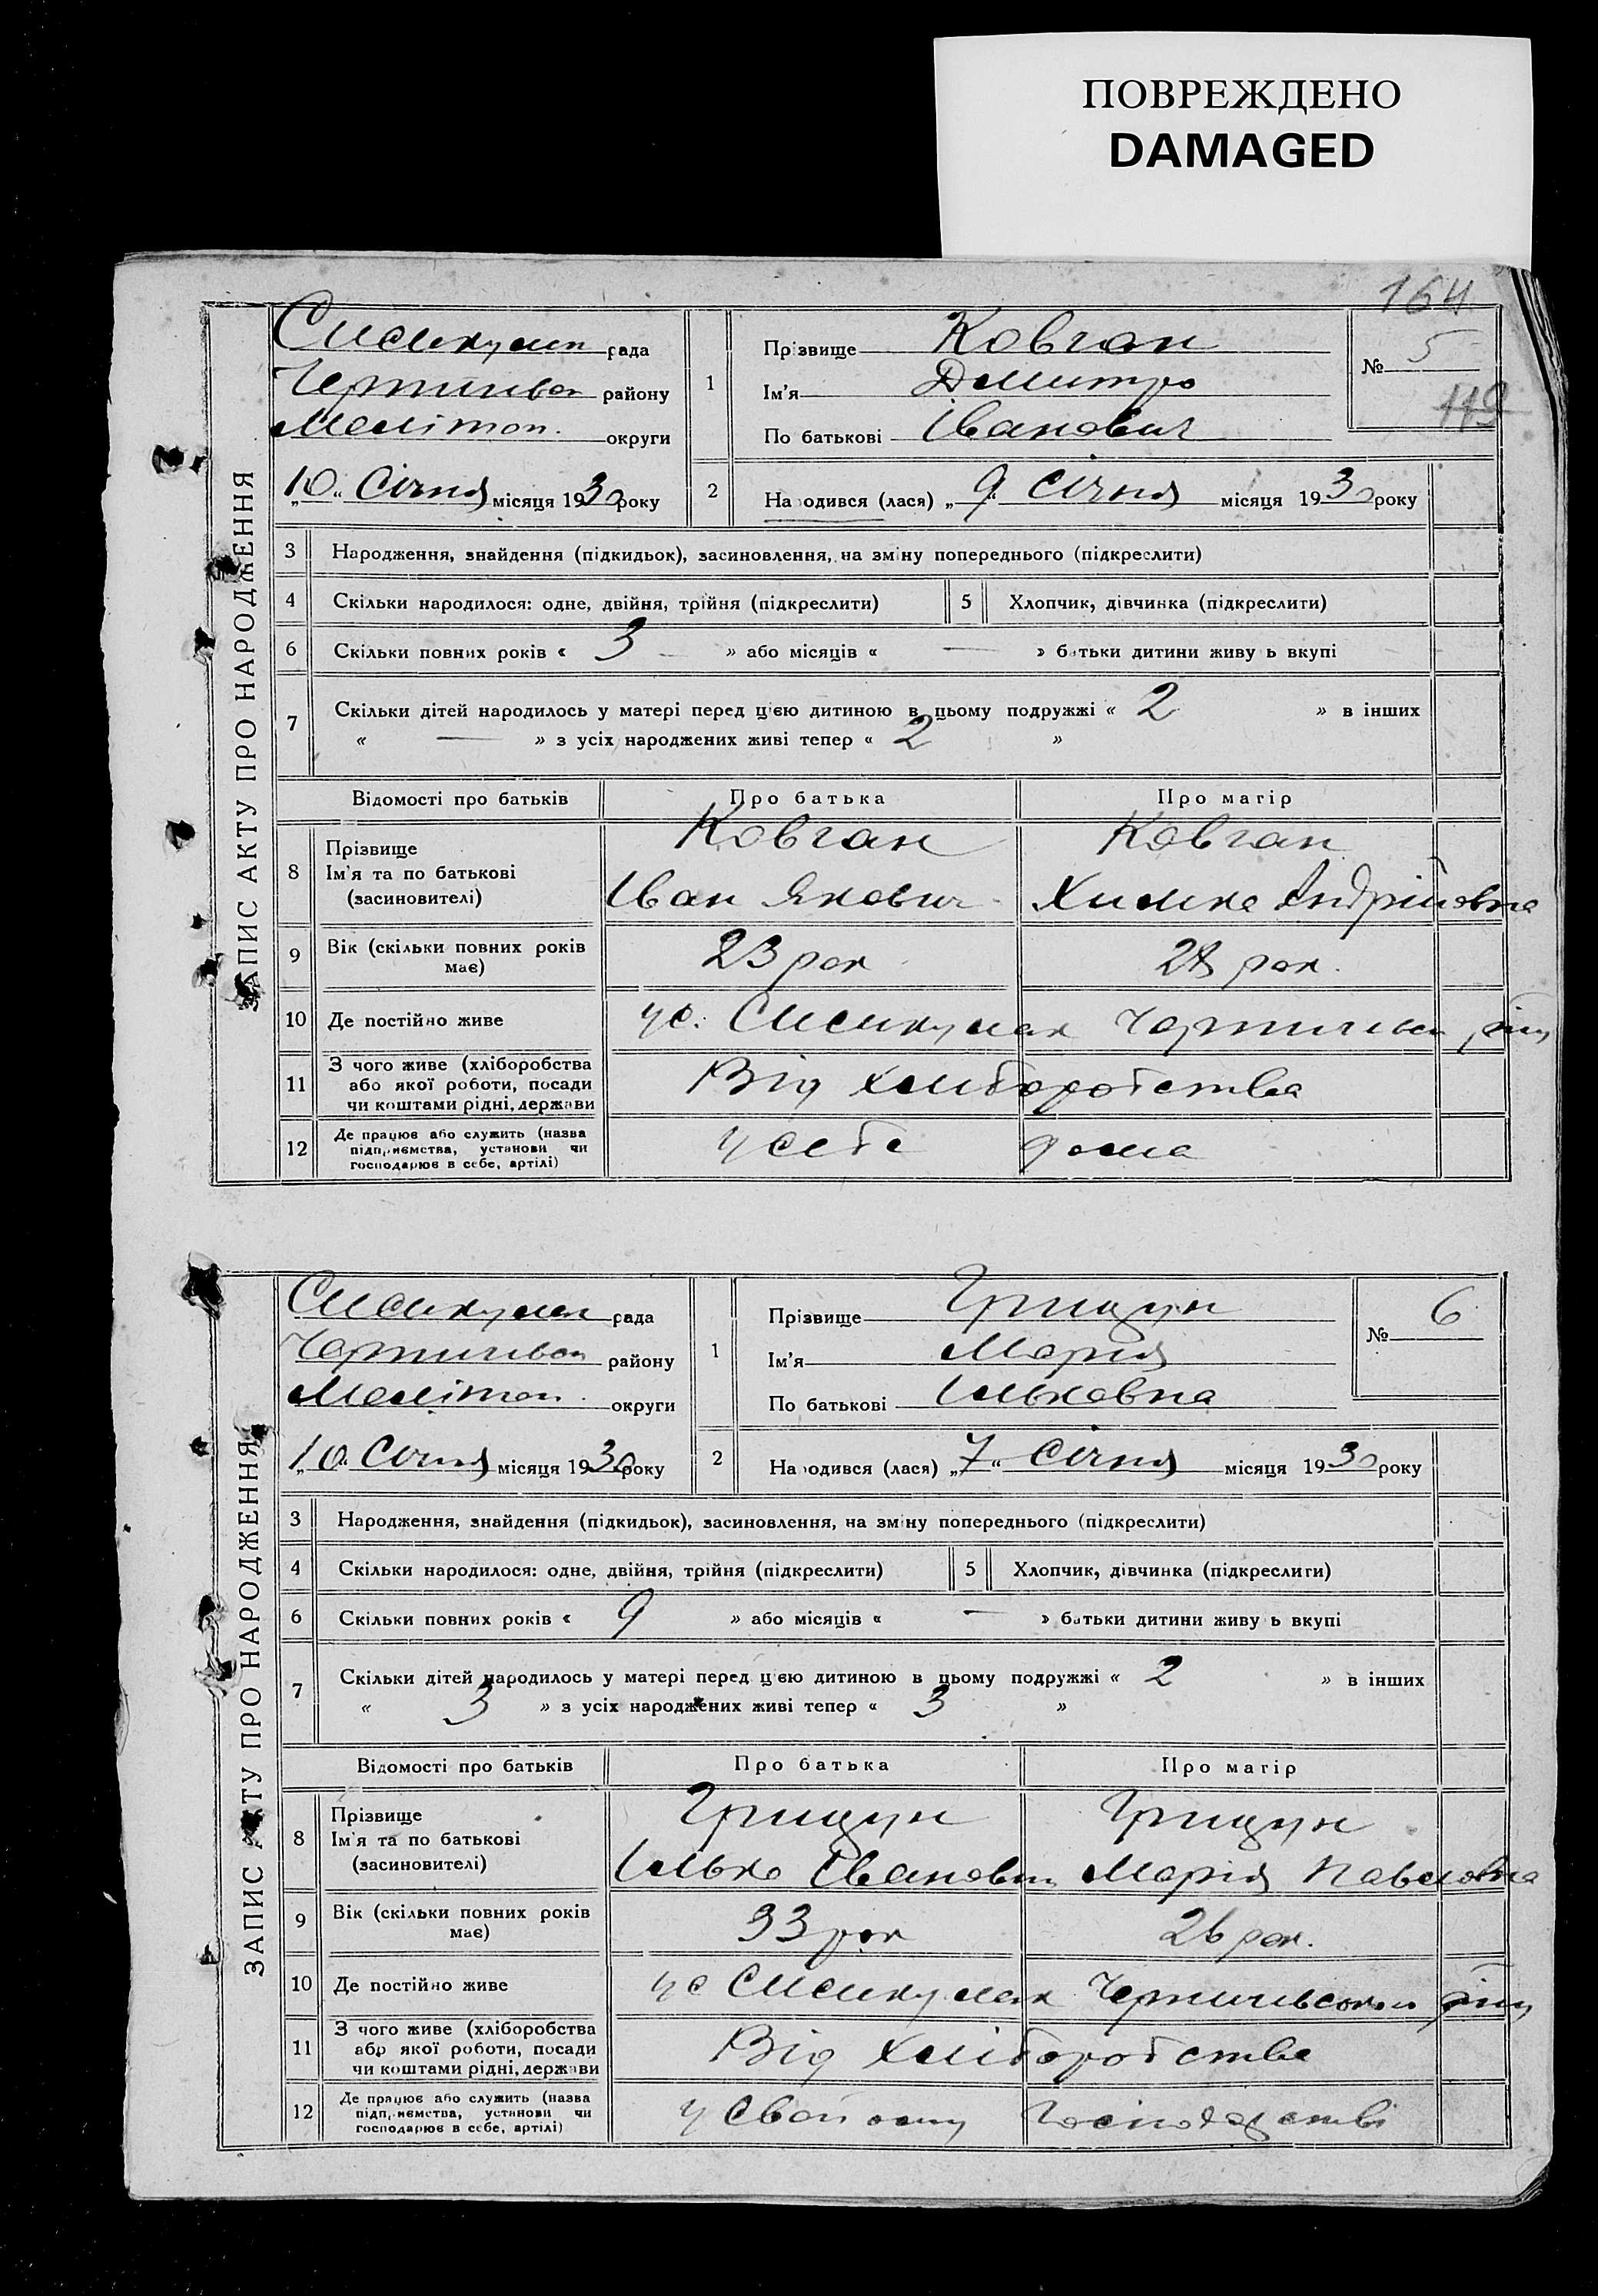 ПОВРЕЖДЕНО
DAMAGED
164
рада
Чернигівсь району
Меліտոп. округи
„10“ Січня місяця 1930 року
1 Прізвище Ковган
Ім'я Дмитро
По батькові Іванович
№ 5
119
2 Народився (лася) „9“ січня місяця 1930 року
ЗАПИС АКТУ ПРО НАРОДЖЕННЯ
3 Народження, знайдення (підкидьок), засиновлення, на зміну попереднього (підкреслити)
4 Скільки народилося: одне, двійня, трійня (підкреслити) 5 Хлопчик, дівчинка (підкреслити)
6 Скільки повних років « 3 — » або місяців « — » батьки дитини живуть вкупі
7 Скільки дітей народилось у матері перед цією дитиною в цьому подружжі « 2 » в інших
« — » з усіх народжених живі тепер « 2 »
Відомості про батьків Про батька Про матір
8 Прізвище Ковган Ковган
Ім'я та по батькові
(засиновителі) Іван Якович Химка Андрійовна
9 Вік (скільки повних років має) 23 рок 28 рок.
10 Де постійно живе у с.
11 З чого живе (хліборобства
або якої роботи, посади
чи коштами рідні, держави Від хліборобства
12 Де працює або служить (назва
підприємства, установи чи
господарює в себе, артілі) у себе дома
рада
Чернигівсь району
Меліտոп. округи
„10“ Січня місяця 1930 року
1 Прізвище Грицун
Ім'я Марія
По батькові Ільковна
№ 6
2 Народився (лася) „7“ січня місяця 1930 року
ЗАПИС АКТУ ПРО НАРОДЖЕННЯ
3 Народження, знайдення (підкидьок), засиновлення, на зміну попереднього (підкреслити)
4 Скільки народилося: одне, двійня, трійня (підкреслити) 5 Хлопчик, дівчинка (підкреслити)
6 Скільки повних років « 9 » або місяців « — » батьки дитини живуть вкупі
7 Скільки дітей народилось у матері перед цією дитиною в цьому подружжі « 2 » в інших
« 3 » з усіх народжених живі тепер « 3 »
Відомості про батьків Про батька Про матір
8 Прізвище Грицун Грицун
Ім'я та по батькові
(засиновителі) Ілько Іванович Марія Павловна
9 Вік (скільки повних років має) 33 рок 26 рок.
10 Де постійно живе у с
11 З чого живе (хліборобства
або якої роботи, посади
чи коштами рідні, держави Від хліборобства
12 Де працює або служить (назва
підприємства, установи чи
господарює в себе, артілі) у своїому господарстві